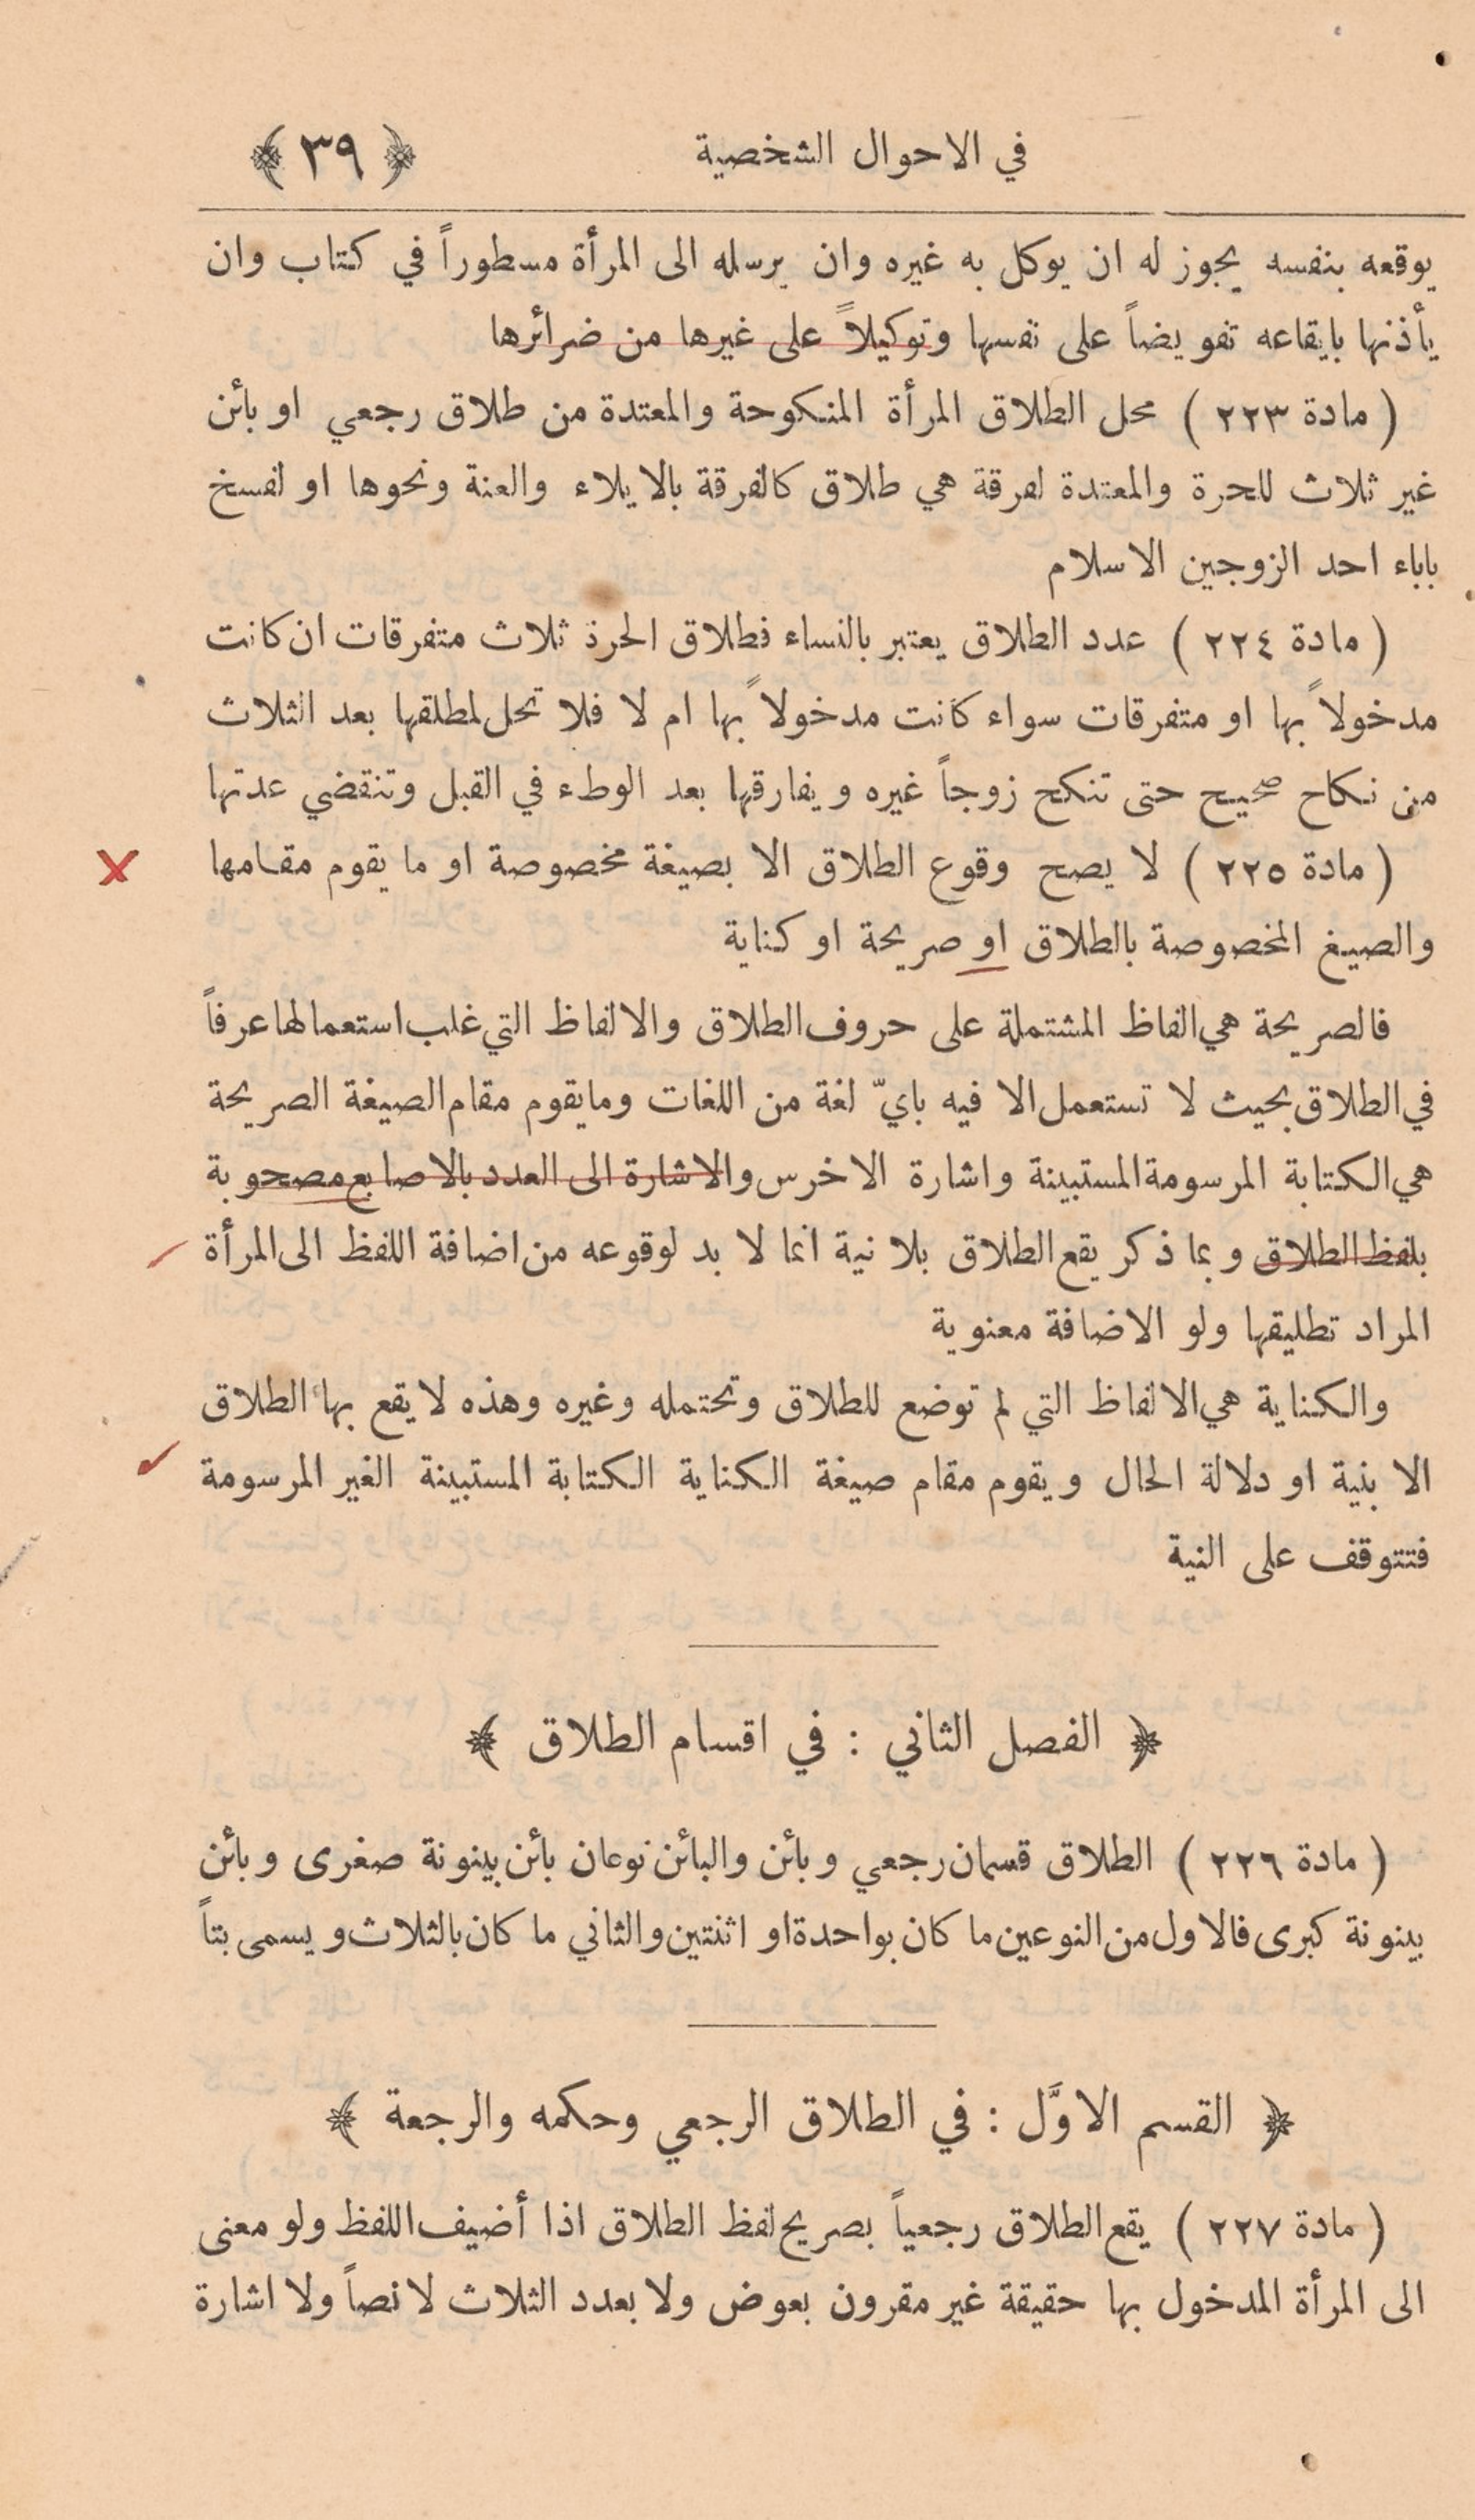 في الاحوال الشخصية ﴿ ٣٩ ﴾
يوقعه بنفسه يجوز له ان يوكل به غيره وان يرسله الى المرأة مسطوراً في كتاب وان
يأذنها بايقاعه تفويضاً على نفسها وتوكيلاً على غيرها من ضرائرها
( مادة ٢٢٣ ) محل الطلاق المرأة المنكوحة والمعتدة من طلاق رجعي او بائن
غير ثلاث للحرة والمعتدة لفرقة هي طلاق كالفرقة بالايلاء والعنة ونحوها او لفسخ
باباء احد الزوجين الاسلام
( مادة ٢٢٤ ) عدد الطلاق يعتبر بالنساء فطلاق الحرة ثلاث متفرقات ان كانت
مدخولاً بها او متفرقات سواء كانت مدخولاً بها ام لا فلا تحل لمطلقها بعد الثلاث
من نكاح صحيح حتى تنكح زوجاً غيره ويفارقها بعد الوطء في القبل وتنقضي عدتها
( مادة ٢٢٥ ) لا يصح وقوع الطلاق الا بصيغة مخصوصة او ما يقوم مقامها
والصيغ المخصوصة بالطلاق او صريحة او كناية
فالصريحة هي الفاظ المشتملة على حروف الطلاق والالفاظ التي غلب استعمالها عرفاً
في الطلاق بحيث لا تستعمل الا فيه بايّ لغة من اللغات وما يقوم مقام الصيغة الصريحة
هي الكتابة المرسومة المستبينة واشارة الاخرس والاشارة الى العدد بالاصابع مصحوبة
بلفظ الطلاق وبما ذكر يقع الطلاق بلا نية انما لا بد لوقوعه من اضافة اللفظ الى المرأة
المراد تطليقها ولو الاضافة معنوية
والكناية هي الالفاظ التي لم توضع للطلاق وتحتمله وغيره وهذه لا يقع بها الطلاق
الا بنية او دلالة الحال ويقوم مقام صيغة الكناية الكتابة المستبينة الغير المرسومة
فتتوقف على النية
﴿ الفصل الثاني : في اقسام الطلاق ﴾
( مادة ٢٢٦ ) الطلاق قسمان رجعي وبائن والبائن نوعان بائن بينونة صغرى وبائن
بينونة كبرى فالاول من النوعين ما كان بواحدة او اثنتين والثاني ما كان بالثلاث ويسمى بتاً
﴿ القسم الاوَّل : في الطلاق الرجعي وحكمه والرجعة ﴾
( مادة ٢٢٧ ) يقع الطلاق رجعياً بصريح لفظ الطلاق اذا أضيف اللفظ ولو معنى
الى المرأة المدخول بها حقيقة غير مقرون بعوض ولا بعدد الثلاث لا نصاً ولا اشارة